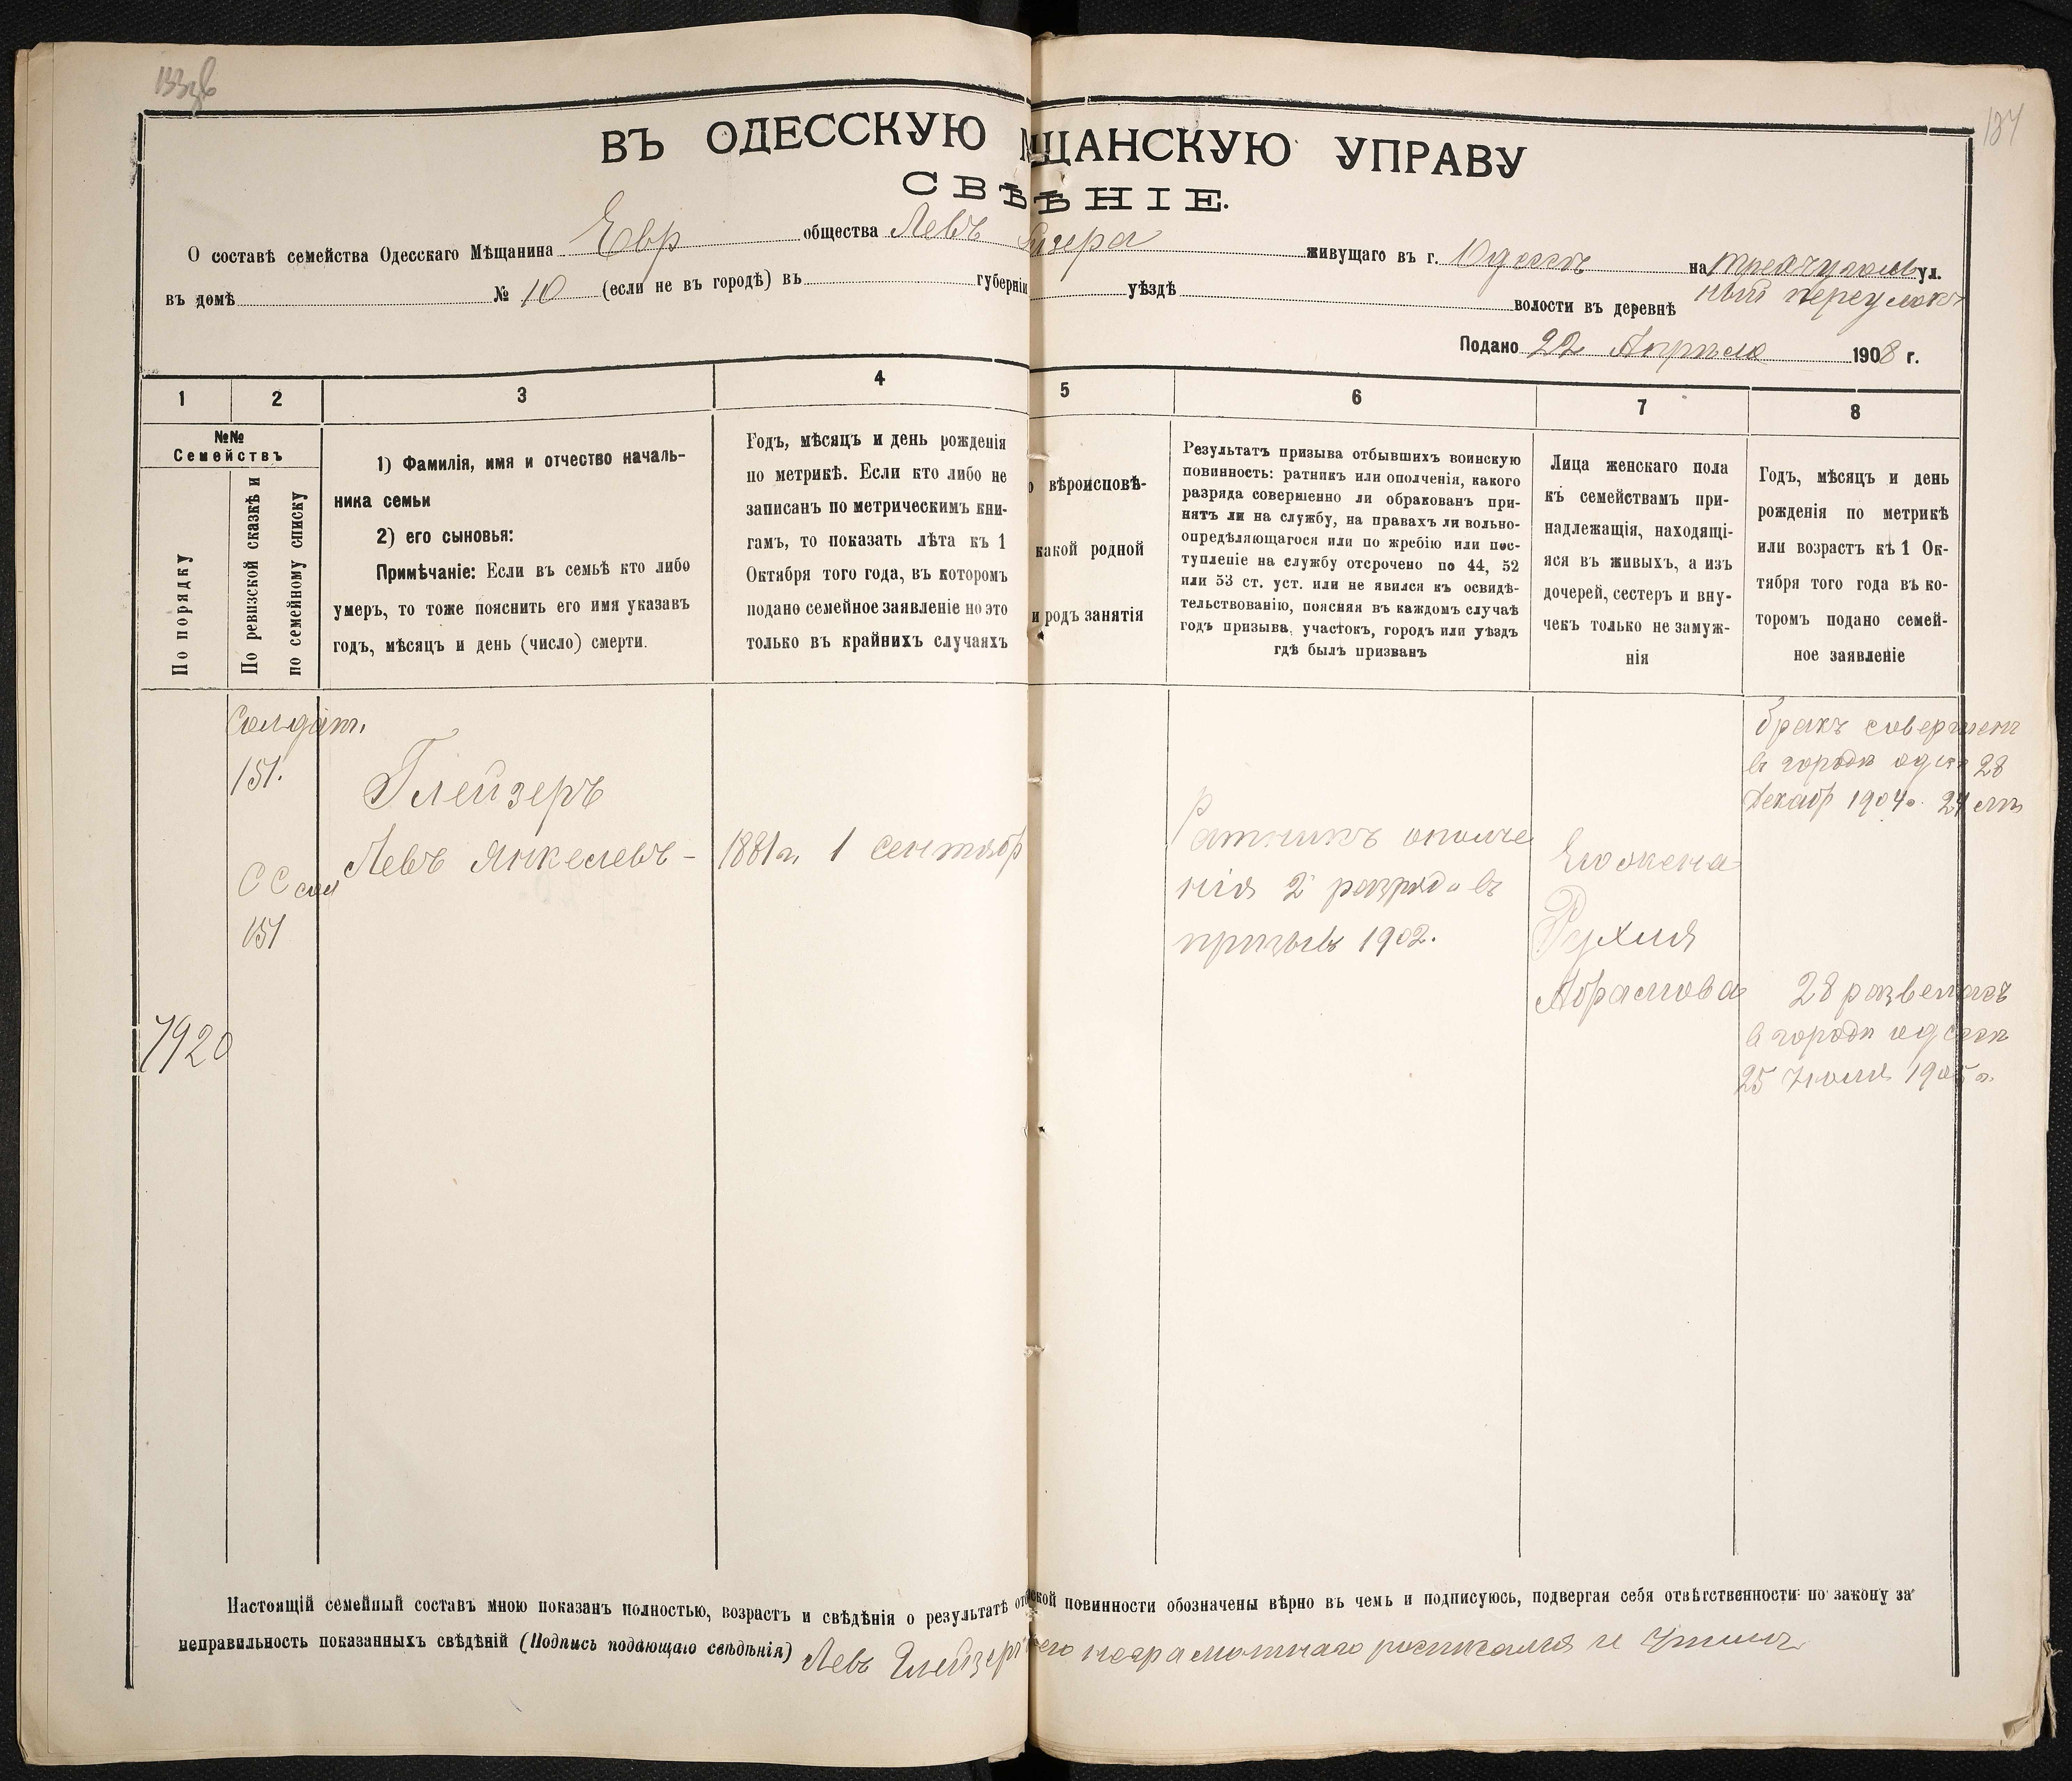 134
ВЪ ОДЕССКУЮ ЩАНСКУЮ УПРАВУ
СВѢ ѢНІЕ.
О составѣ семейства Одесскаго Мѣщанина Евр общества Левъ зера живущаго въ г. Одессѣ на треугольул.
въ домѣ № 10 (если не въ городѣ) въ губерніи уѣздѣ волости въ деревнѣ ный переулокъ
Подано 22 Апрѣля 1908 г.
1 2 3 4 5 6 7 8
№№
Семействъ
По порядку
По ревизской сказкѣ и
по семейному списку
1) Фамилія, имя и отчество началь-
ника семьи
2) его сыновья:
Примѣчаніе: Если въ семьѣ кто либо
умеръ, то тоже пояснить его имя указавъ
годъ, мѣсяцъ и день (число) смерти.
Годъ, мѣсяцъ и день рожденія
по метрикѣ. Если кто либо не
записанъ по метрическимъ кни-
гамъ, то показать лѣта къ 1
Октября того года, въ которомъ
подано семейное заявленіе но это
только въ крайнихъ случаяхъ
вѣроисповѣ-
какой родной
и родъ занятія
Результатъ призыва отбывшихъ воинскую
повинность: ратникъ или ополченія, какого
разряда совершенно ли обракованъ при-
нятъ ли на службу, на правахъ ли вольно-
опредѣляющагося или по жребію или пос-
тупленіе на службу отсрочено по 44, 52
или 53 ст. уст. или не явился къ освидѣ-
тельствованію, поясняя въ каждомъ случаѣ
годъ призыва, участокъ, городъ или уѣздъ
гдѣ былъ призванъ
Лица женскаго пола
къ семействамъ при-
надлежащія, находящі-
яся въ живыхъ, а изъ
дочерей, сестеръ и вну-
чекъ только не замуж-
нія
Годъ, мѣсяцъ и день
рожденія по метрикѣ
или возрастъ кѣ 1 Ок-
тября того года въ ко-
торомъ подано семей-
ное заявленіе
Солдат.
151.
СС сол
151
7920
Глейзеръ
Левъ Янкелевъ -
1881 г. 1 сентябр
Ратникъ ополче
нія 2 разряда въ
призывѣ 1902.
Его жена
Рухля
Абрамова
бракъ совершен
в городѣ одес 28
Декабр 1904 г. 24 лѣ
28 развелась
в городѣ одессѣ
25 Іюля 1905 г.
Настоящій семейный составъ мною показанъ полностью, возрастъ и свѣдѣнія о результатѣ от ской повинности обозначены вѣрно въ чемъ и подписуюсь, подвергая себя отвѣтственности по закону за
неправильность показанныхъ свѣдѣній (Подпись подающаго свѣдѣнія) Левъ Глейзеръ его неграмотнаго росписался и